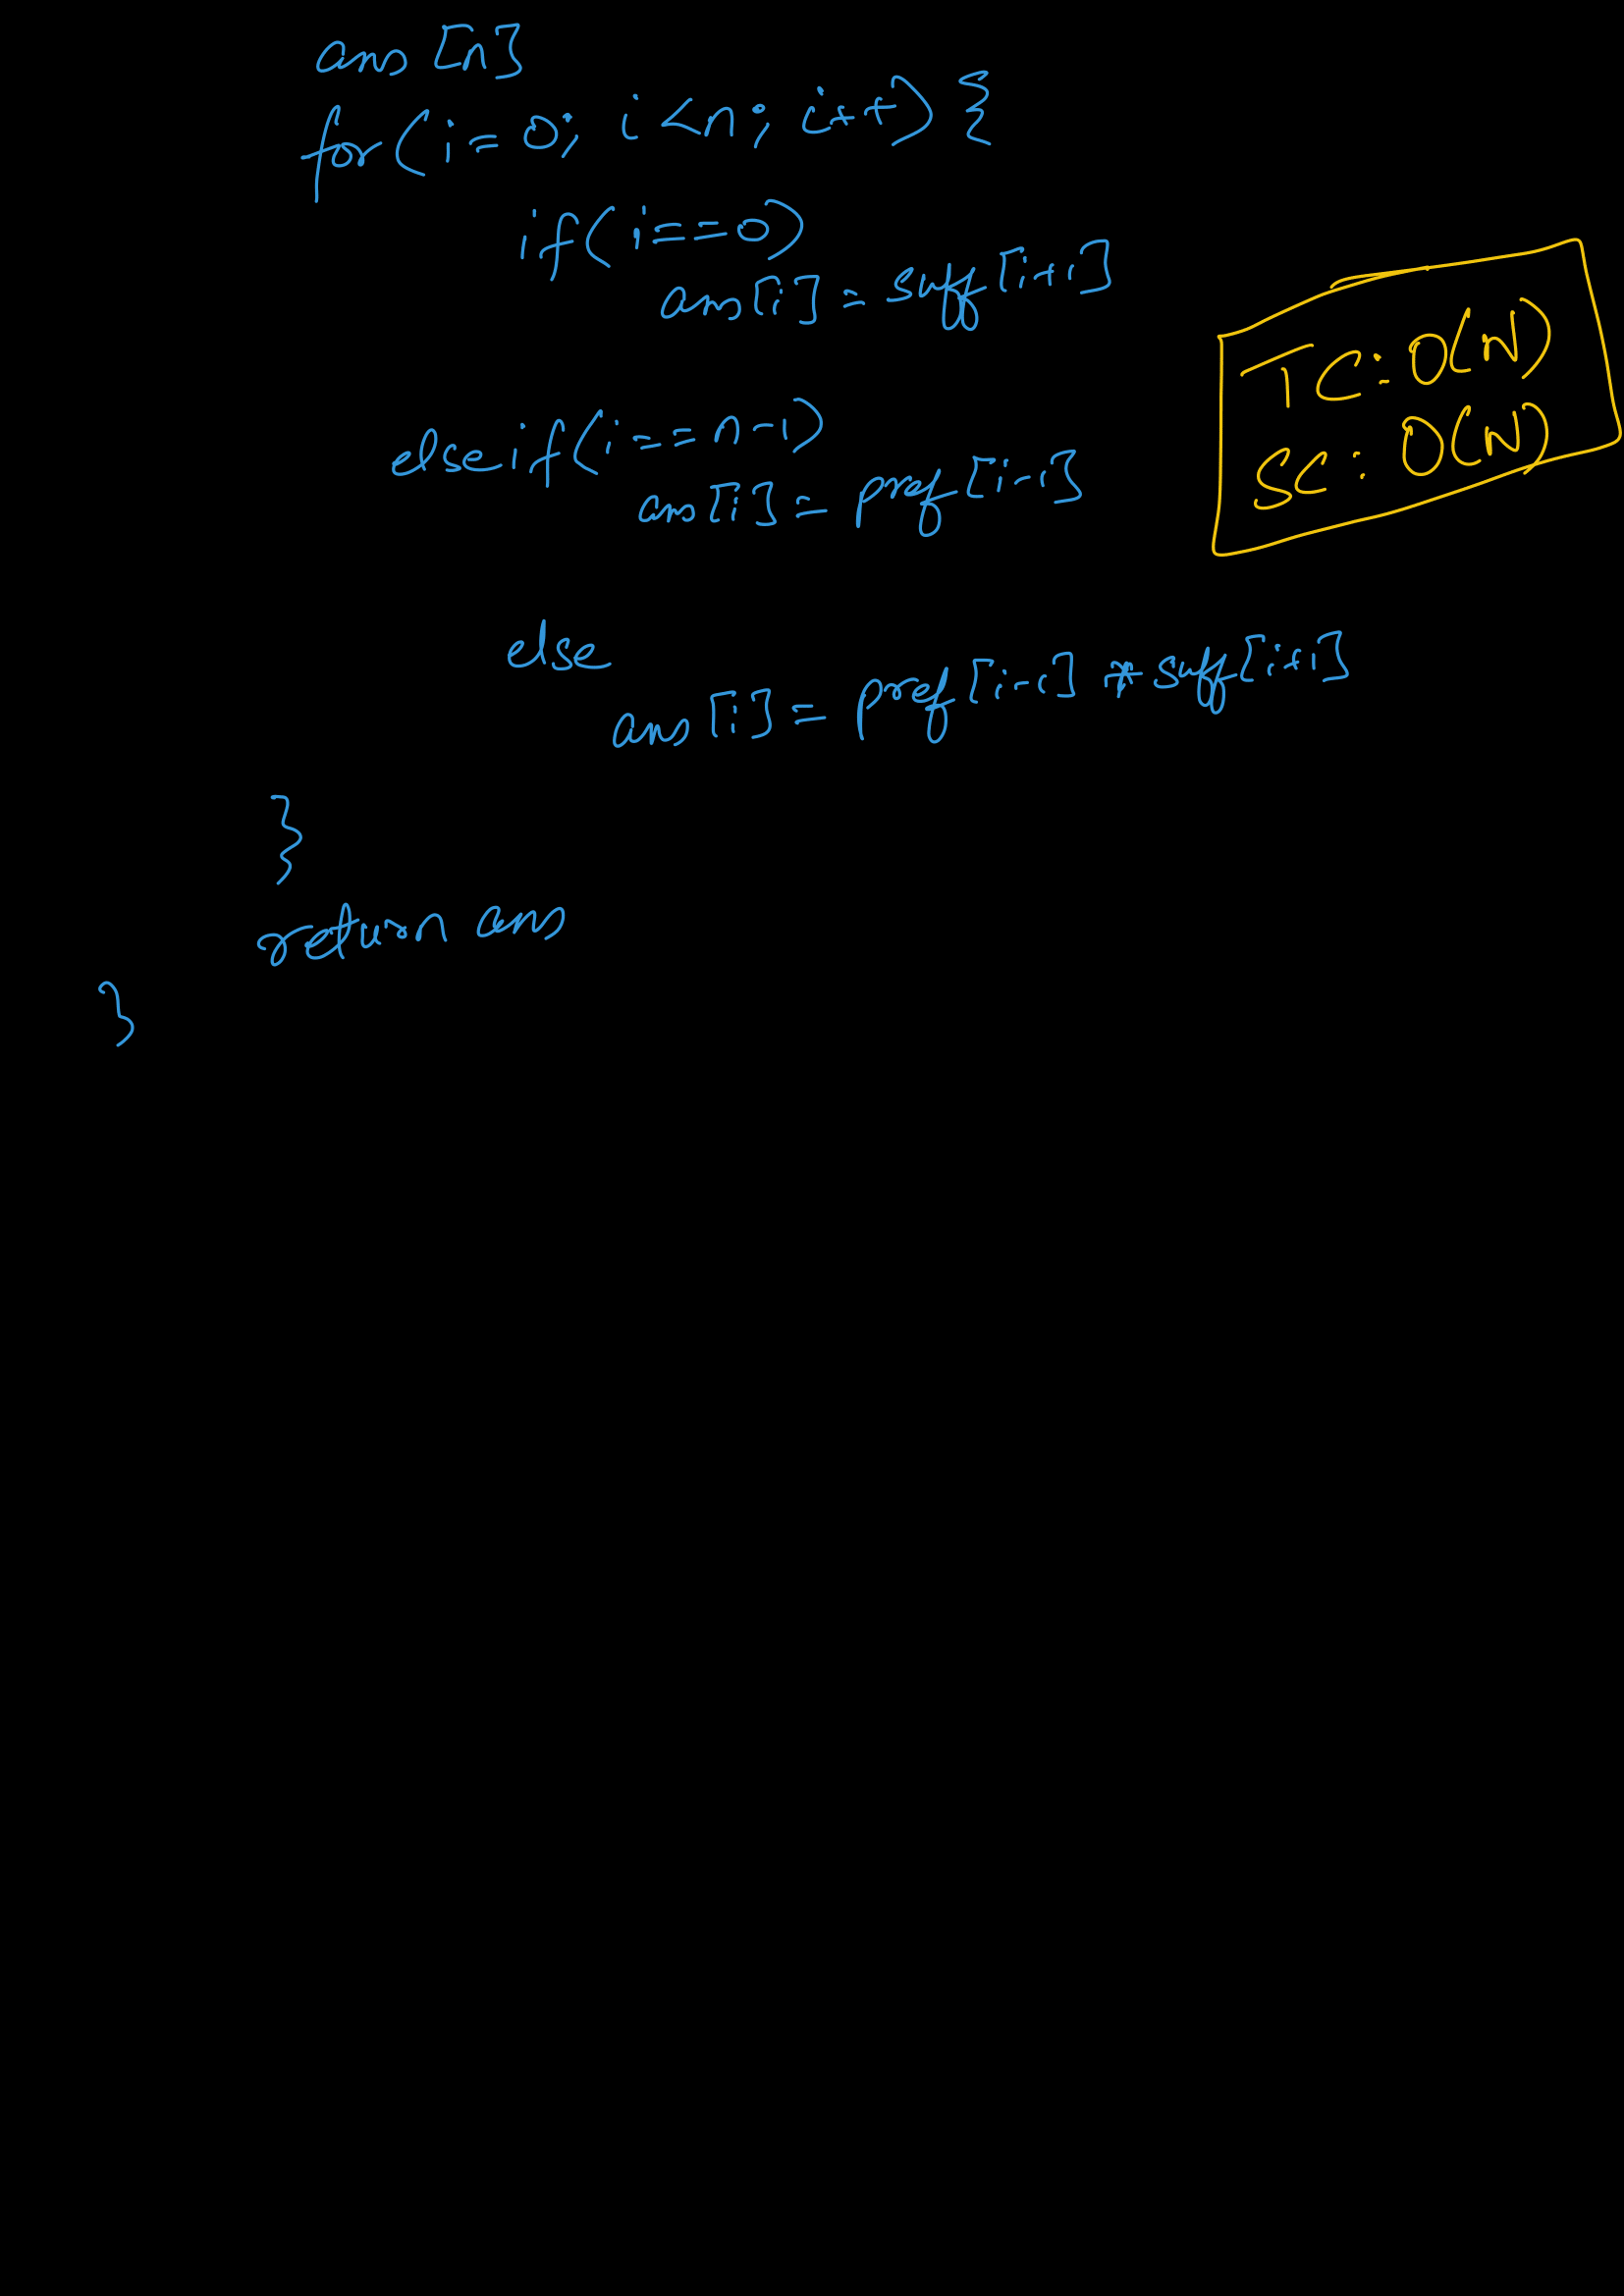 ans [n]
for(i=0; i<n; i++) {
if(i==0)
ans[i] = suff[i+1]
else if(i==n-1)
ans[i] = pref[i-1]
else
ans[i] = pref[i-1] * suff[i+1]
}
return ans
}
TC: O(N)
SC: O(N)